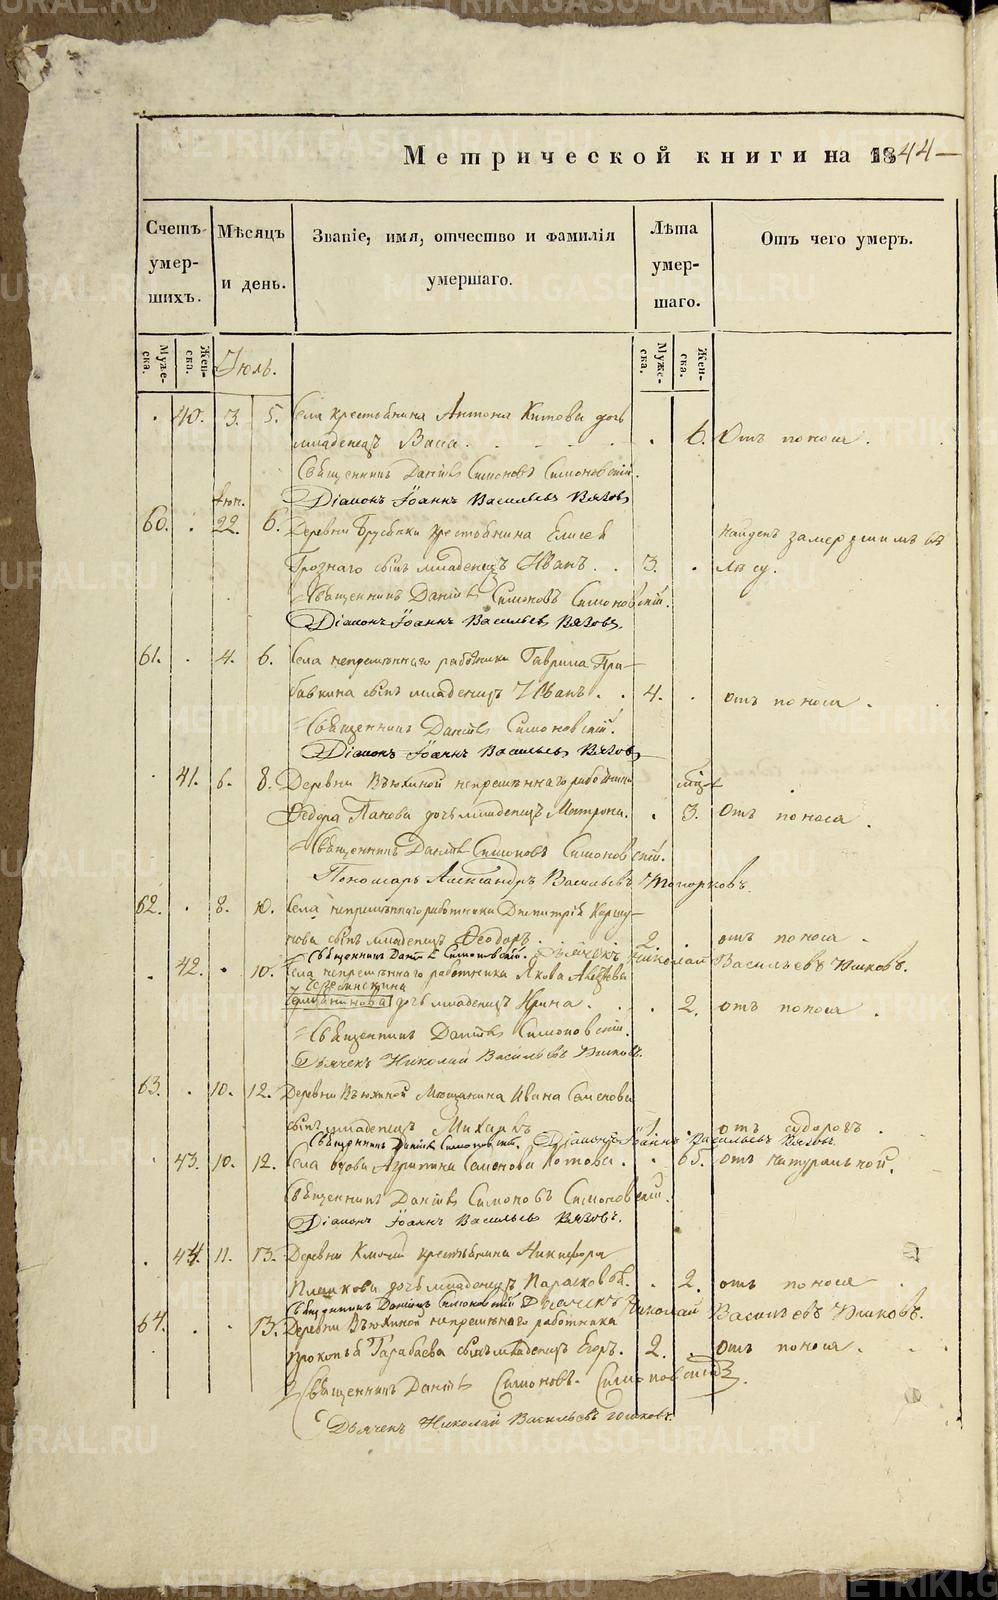 Метрической книги на 1844
Счетъ умершихъ.
Мѣсяцъ и день.
Званіе, имя, отчество и фамилія умершаго.
Лѣта умершаго.
Отъ чего умеръ.
Мужеска.
Женска.
Іюль.
Мужеска.
Женска.
40. 3. 5. Села крестьянина Антона Китова дочь
младенецъ Васса. 6. Отъ поноса.
Священникъ Даніилъ Симоновъ Симоновскій.
Діаконъ Іоаннъ Васильевъ Вязовъ
Іюн.
60. 22. 6. Деревни Брусянки крестьянина Елисея
найденъ замерзшимъ въ
Грознаго сынъ младенецъ Иванъ. 3. лѣсу.
Священникъ Даніилъ Симоновъ Симоновскій.
Діаконъ Іоаннъ Васильевъ Вязовъ
61. 4. 6. Села непремѣннаго работника Гаврила Гра-
бавкина сынъ младенецъ Иванъ. 4. отъ поноса.
Священникъ Даніилъ Симоновскій.
Діаконъ Іоаннъ Васильевъ Вязовъ
41. 6. 8. Деревни Вьюхиной непремѣннаго работника
Ѳедора Панова дочь младенецъ Матрона. 3. Отъ поноса.
Священникъ Даніилъ Симоновъ Симоновскій.
Пономарь Александръ Васильевъ Топорковъ.
62. 8. 10. Села непремѣннаго работника Димитрія Коршу-
нова сынъ младенецъ Ѳеодоръ. 2. отъ поноса.
Священникъ Даніилъ Симоновскій. Дьячекъ Николай Васильевъ
42. 10. Села непремѣннаго работника Якова
дочь младенецъ Ирина. 2. отъ поноса.
Священникъ Даніилъ Симоновскій.
Дьячекъ Николай Васильевъ
63. 10. 12. Деревни Вьюхиной Мещанина Ивана Семенова
сынъ младенецъ Михаилъ 1. отъ судорогъ.
Священникъ Даніилъ Симоновскій. Діаконъ Іоаннъ Васильевъ Вязовъ.
43. 10. 12. Села вдова Агрипина Семенова Котова. 65. отъ натуральной.
Священникъ Даніилъ Симоновъ Симоновскій.
Діаконъ Іоаннъ Васильевъ Вязовъ.
44. 11. 13. Деревни Ключей крестьянина Никифора
дочь младенецъ Парасковья. 2. отъ поноса.
Священникъ Даніилъ Симоновскій Дьячекъ Николай Васильевъ
64. 13. Деревни Вьюхиной непремѣннаго работника
Прокопья Гарабаева сынъ младенецъ Егоръ. 2. Отъ поноса.
Священникъ Даніилъ Симоновъ Симоновскій.
Дьячекъ Николай Васильевъ
METRIKI.GASO-URAL.RU